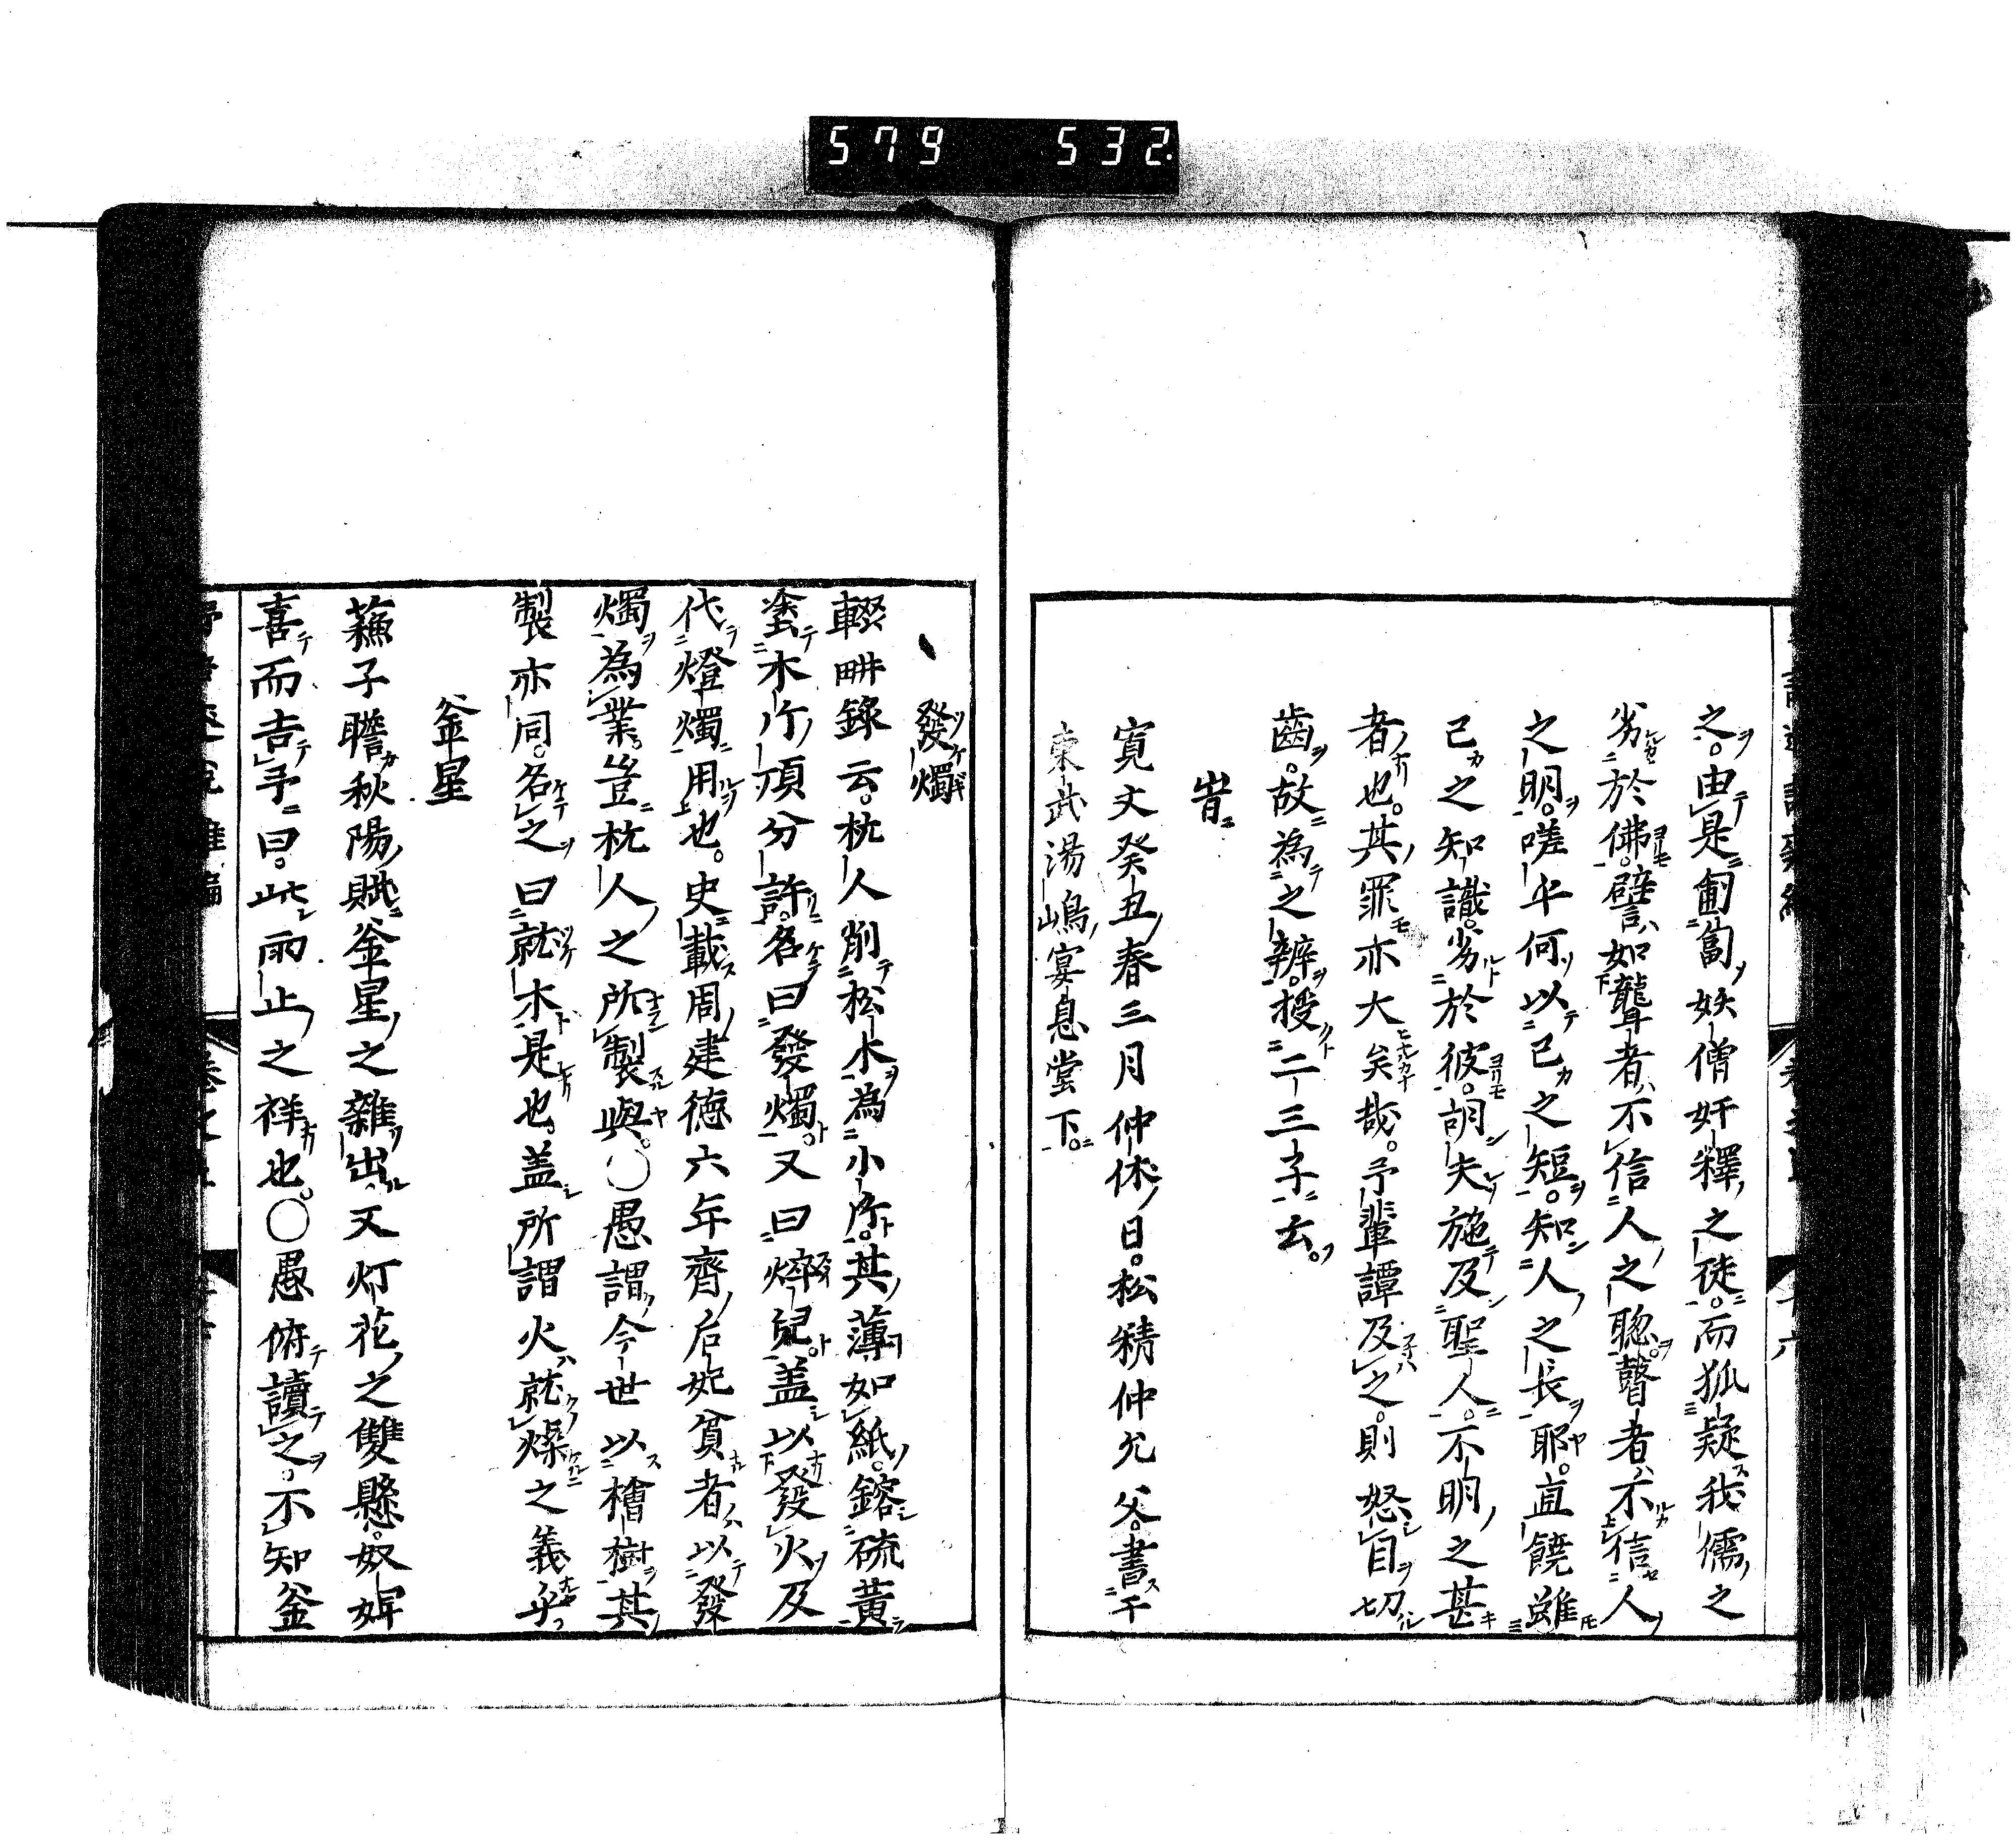 579 532
之由是匍匐妖僧奸釋之徒而狐疑我儒之
劣於佛譬如聾者不信人之聡瞽者不信人
之明嗟乎何以己之短知人之長耶直饒雖
己之知識劣於彼胡夫施及聖人不明之甚
者也其罪亦大矣哉予輩譚及之則怒自切
齒故為之辨授二三子云
旹
寛文癸丑春三月仲休日松精仲允父書于
東武湯嶋宴息堂下
發燭
輟畊録云杭人削松木為小片其薄如紙鎔硫黄
塗木片頂分許名曰發燭又曰焠兒盖以發火及
代燈燭用也史載周建德六年齊后妃貧者以發
燭為業豈杭人之所製與〇愚謂今世以檜樹其
製亦同名之曰就木是也盖所謂火就燥之義乎
釜星
蘓子瞻秋陽賦釜星之雜出又灯花之雙懸奴婢
喜而吉予曰此雨止之祥也〇愚俯讀之不知釜